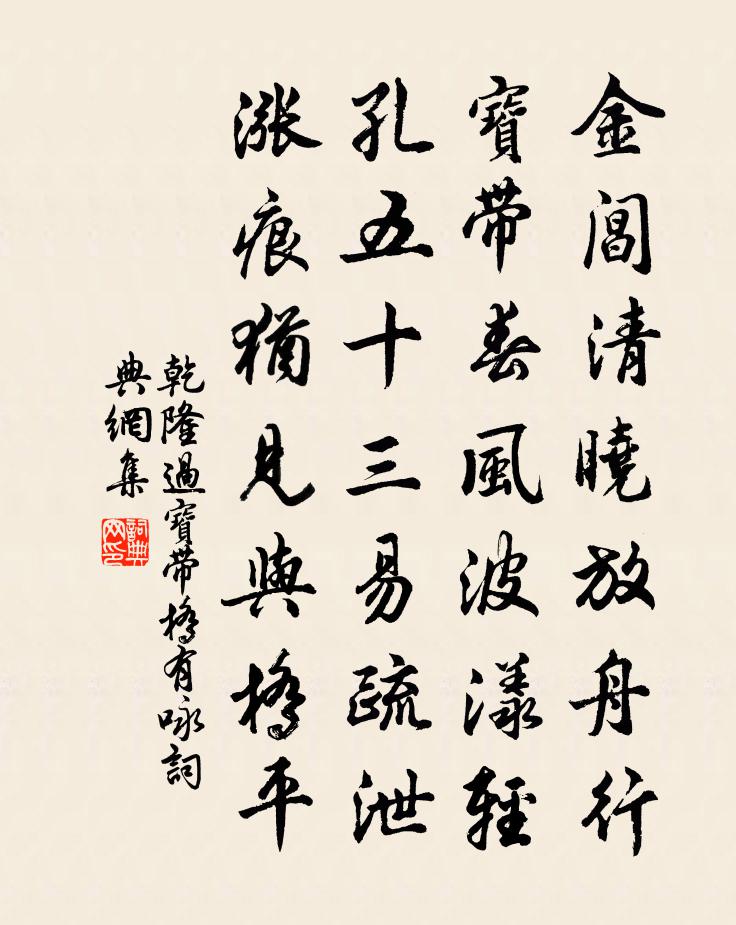 金閶清曉放舟行
寶帶春風波漾輕
孔五十三易疏泄
漲痕猶見與橋平
乾隆過寶帶橋有咏詞
典網集
詞典
网印